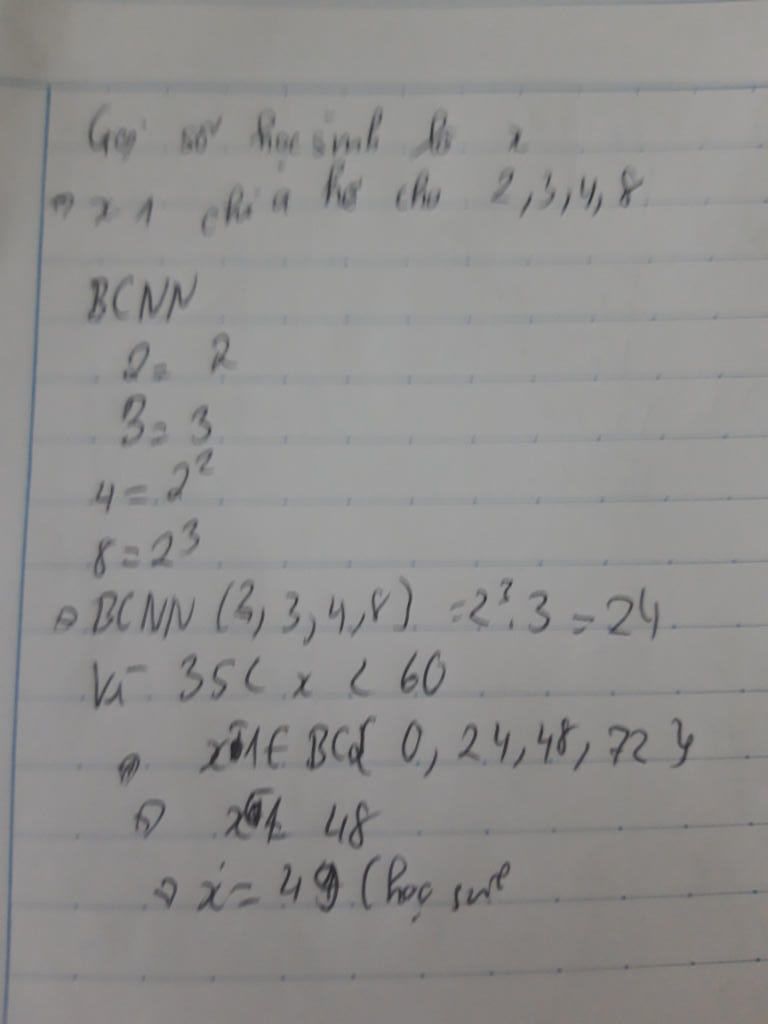 Gọi số học sinh là x
⇒ x-1 chia hết cho 2,3,4,8
BCNN
2= 2
3= 3
4=2²
8=2³
⇒ BCNN (2, 3, 4, 8) =2³.3 = 24
Vì 35< x < 60
⇒ x-1∈ BC{ 0, 24, 48, 72}
⇒ x-1= 48
⇒ x = 49 (học sinh